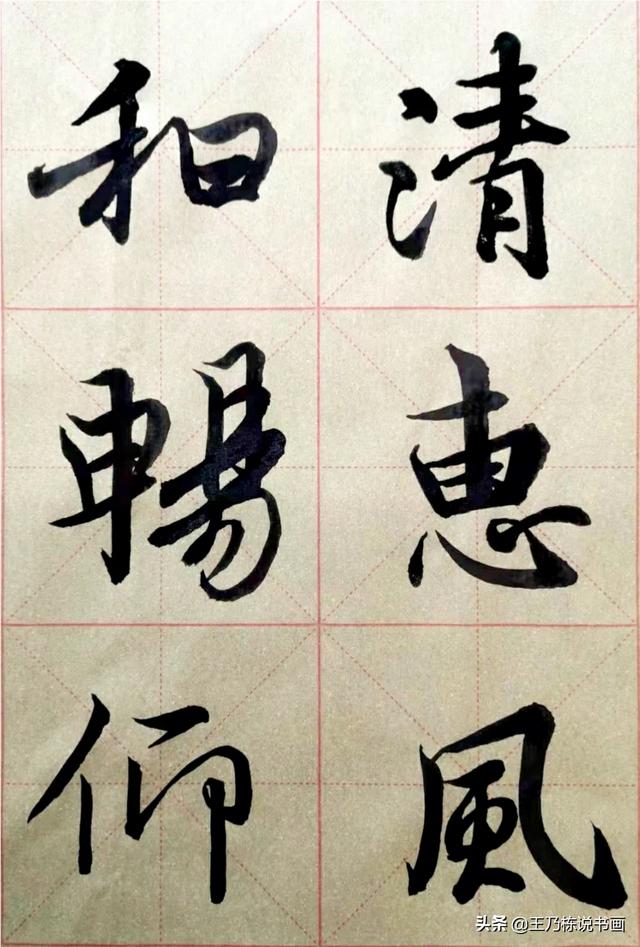 清惠風
和暢仰
头条 @王乃栋说书画